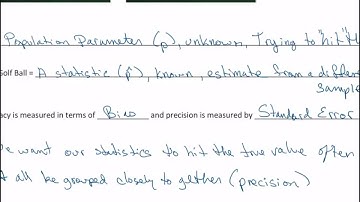 Population Parameter (p), unknown, Trying to "hit"
Golf Ball = A statistic (p̂), known, estimate from a different
sample
acy is measured in terms of Bias and precision is measured by Standard Error
we want our statistics to hit the true value often
all be grouped closely to gether (precision)